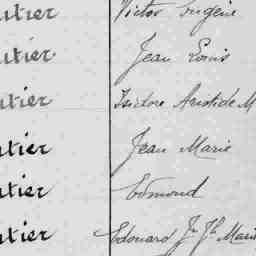 utier Victor Eugène
utier Jean Louis
utier Isidore Aristide M
utier Jean Marie
utier Edmond
utier Edouard Jn Jh Marie